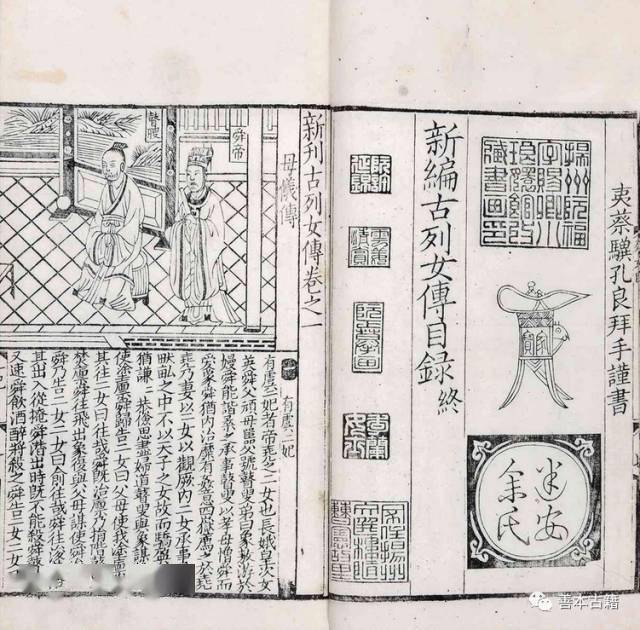 夷蔡驥孔良拜手謹書
揚州阮福
字賜卿小
琅嬛館收
藏書畫印
建安
余氏
新編古列女傳目錄終
新刊古列女傳卷之一
母儀傳
舜帝
有虞二妃
有虞二妃者帝堯之二女也長娥皇次女
英舜父頑母嚚父號瞽叟弟曰象敖游於
嫚舜能諧柔之承事瞽叟以孝母憎舜而
愛象舜猶內治靡有姦意四嶽薦之於堯
堯乃妻以二女以觀厥內二女承事舜於
畎畝之中不以天子之女故而驕盈怠嫚
猶謙謙恭儉思盡婦道瞽叟與象謀殺
使塗廩舜歸告二女曰父母使我塗廩
其往二女曰往哉舜既治廩乃捐階
焚廩舜往飛出象復與父母謀使舜浚
舜乃告二女二女曰俞往哉舜往浚
其出入從掩舜潛出時既不能殺舜瞽
又速舜飲酒醉將殺之舜告二女二女
善本古籍